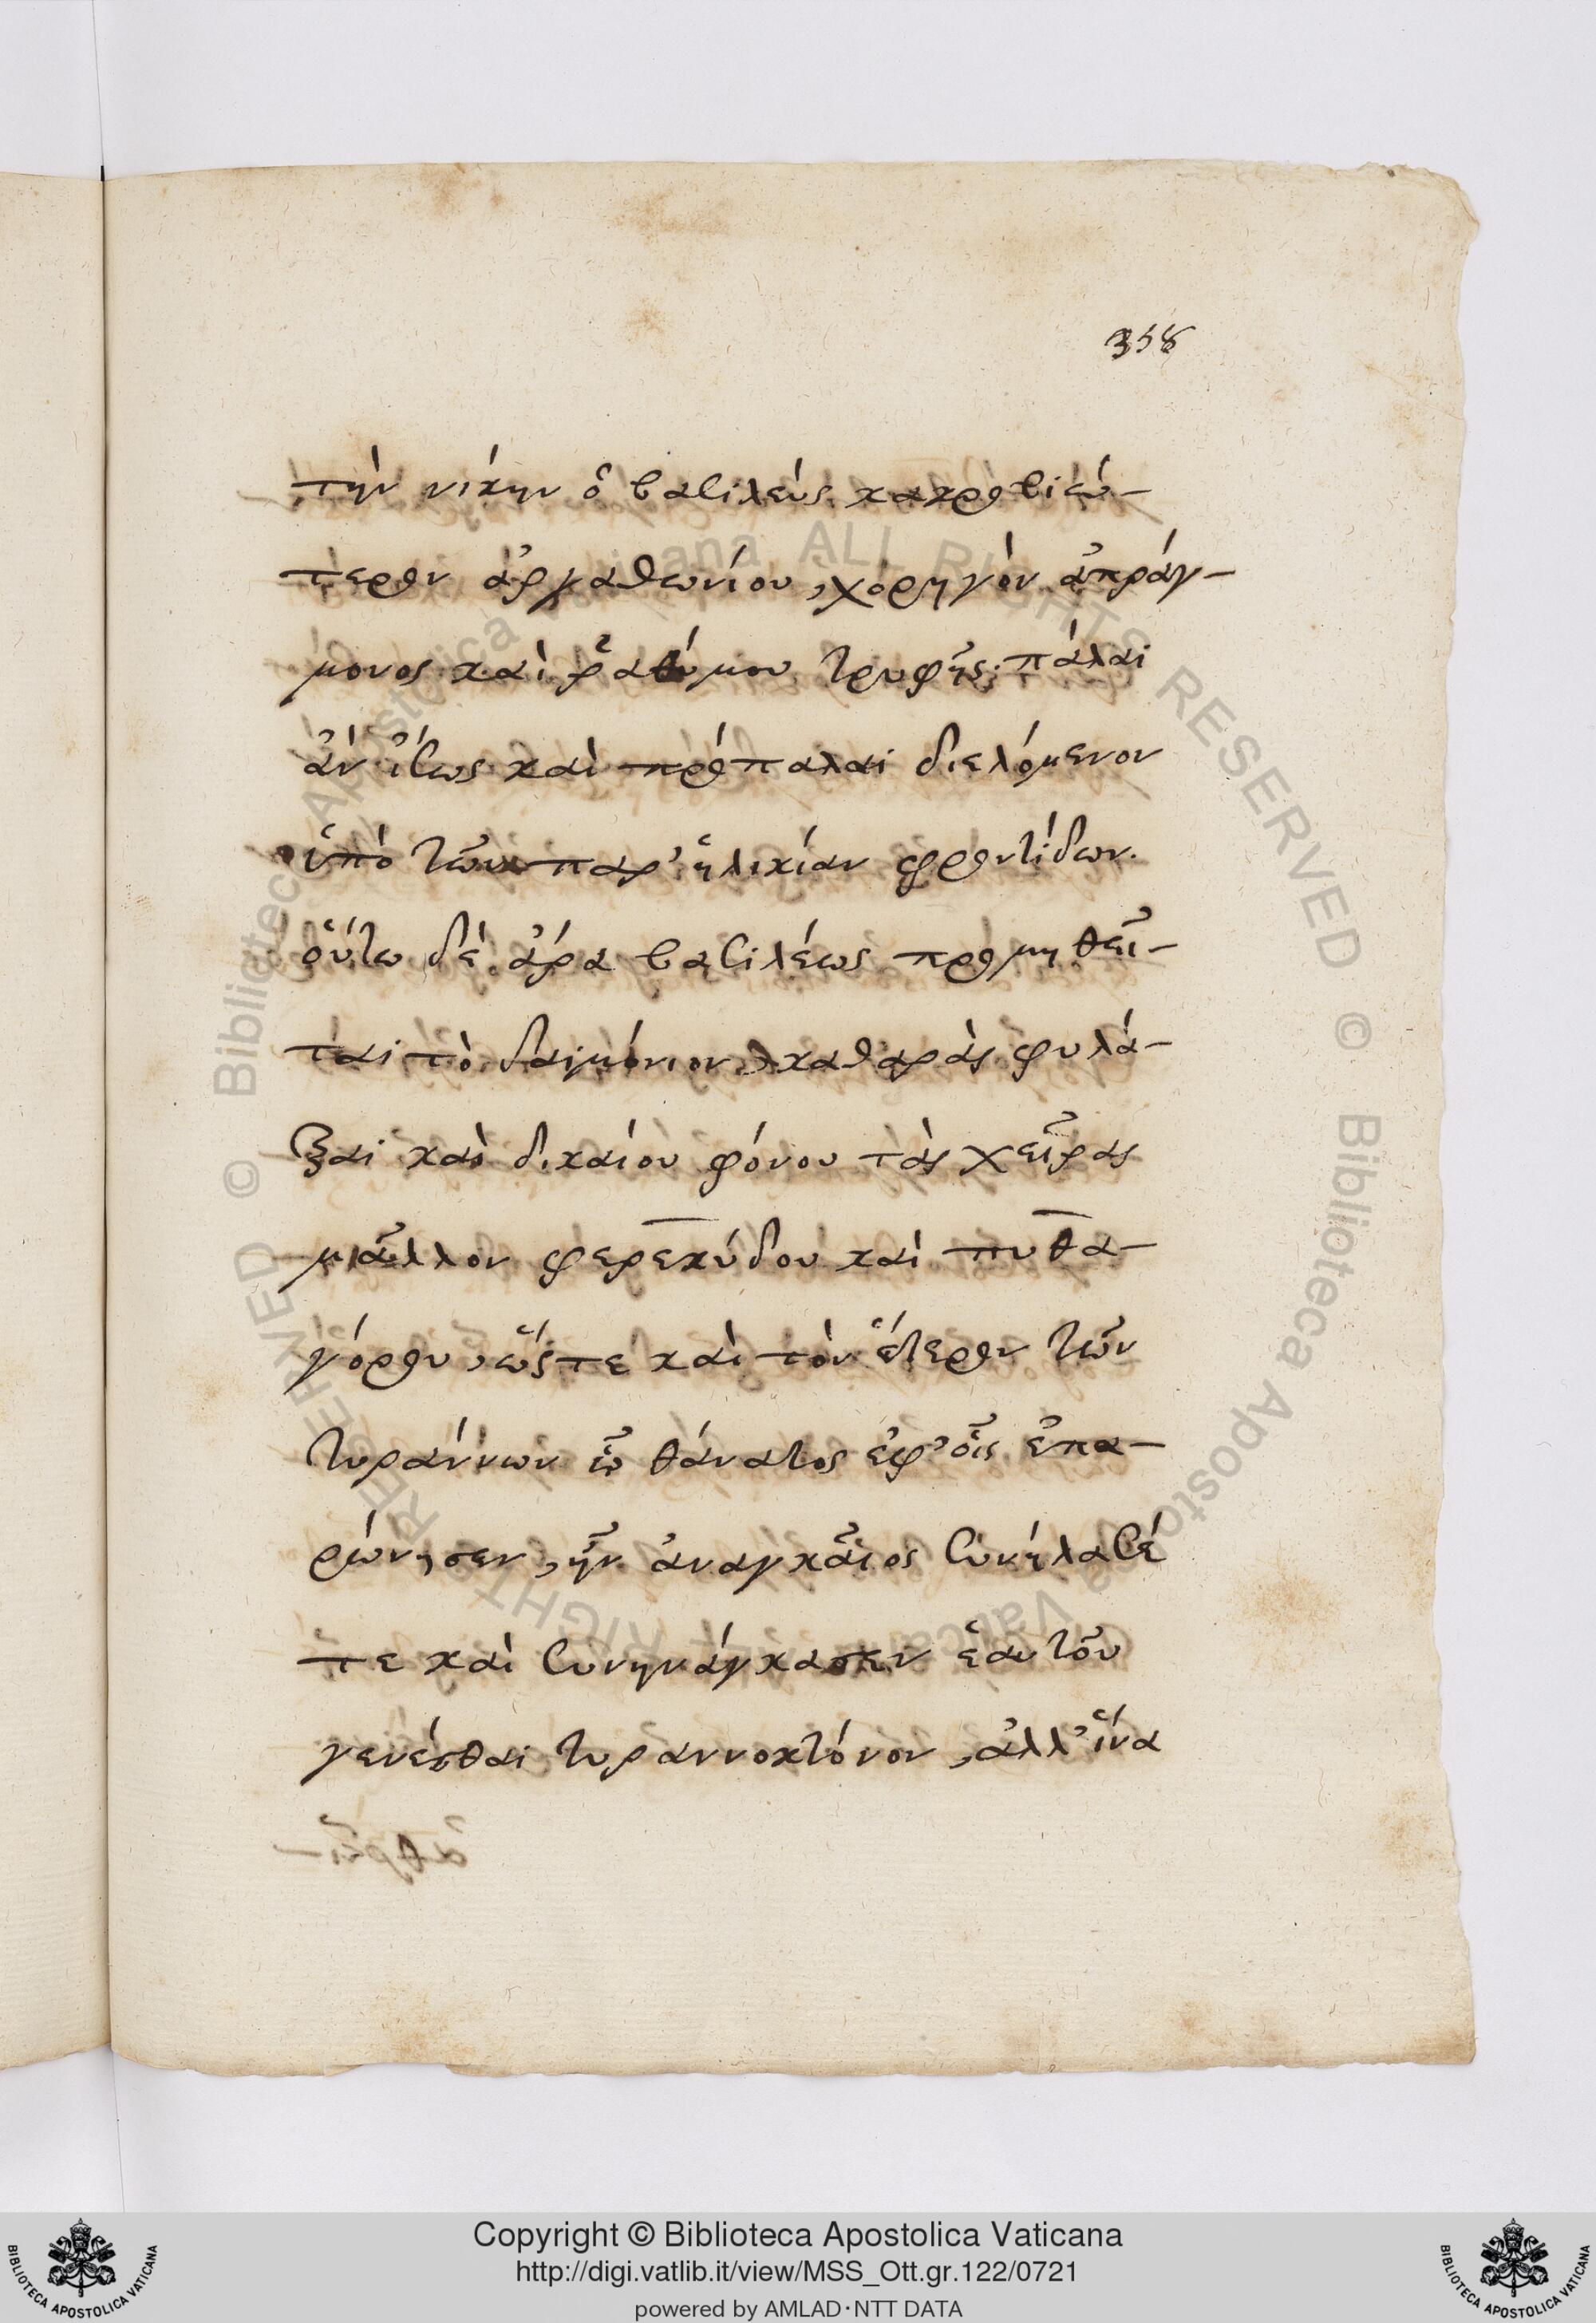 358
τὴν νίκην ὁ βασιλεὺς μακροβιώ-
τερον ἀργαθωνίου, χορηγὸν ἀπράγ-
μονος καὶ ῥαθύμου τρυφῆς· πάλαι
ἂν ἴσως καὶ πρόπαλαι διελόμενον
ὑπὸ τῶν παρ' ἡλικίαν φροντίδων.
οὕτω δὲ ἄρα βασιλέως προμηθεῖ-
ται τὸ δαιμόνιον, καθαρὰς φυλά-
ξαι καὶ δικαίου φόνου τὰς χεῖρας
μᾶλλον φερεκύδου καὶ πυθα-
γόρου, ὥστε καὶ τὸν ἕτερον τῶν
τυράννων ᾧ θάνατος ἐφ' οἷς ἐπα-
ρώνησεν, ἦν ἀναγκαῖος συνήλασέ
τε καὶ συνηνάγκασεν ἑαυτοῦ
γενέσθαι τυραννοκτόνον, ἀλλ' ἵνα
Copyright © Biblioteca Apostolica Vaticana
http://digi.vatlib.it/view/MSS_Ott.gr.122/0721
powered by AMLAD·NTT DATA
BIBLIOTECA APOSTOLICA VATICANA
BIBLIOTECA APOSTOLICA VATICANA
© Biblioteca Apostolica Vaticana ALL RIGHTS RESERVED © Biblioteca Apostolica Vaticana ALL RIGHTS RESERVED